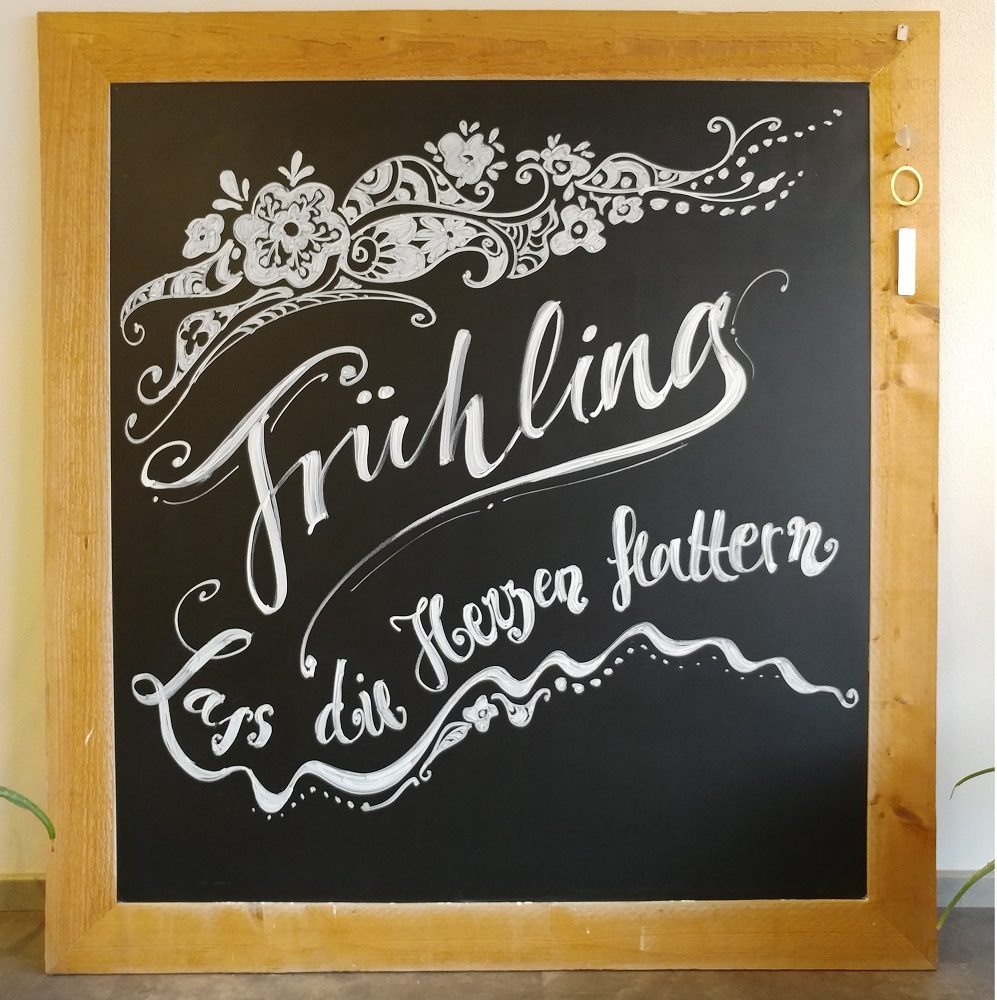 Frühling
Lass die Herzen flattern